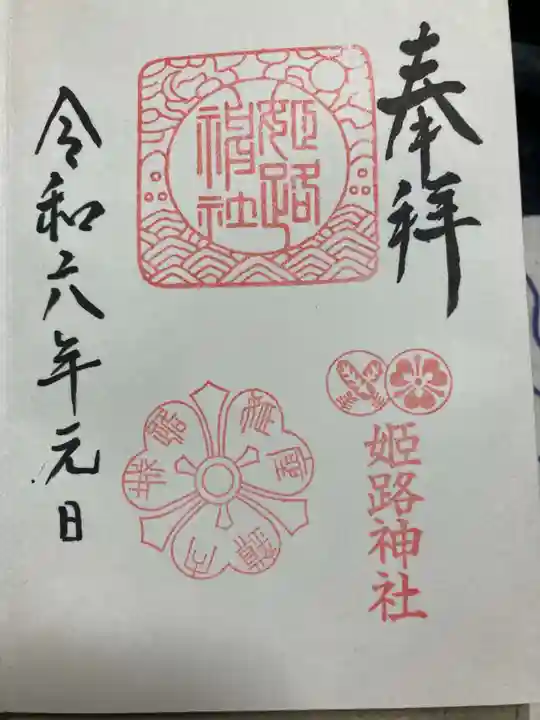 奉拝
姫路
神社
姫路神社
令和六年元日